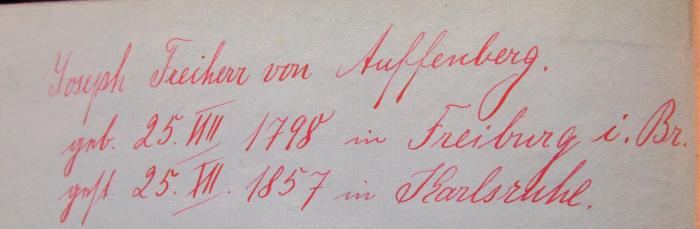 Joseph Freiherr von Auffenberg.
geb. 25. VIII 1798 in Freiburg i. Br.
gest. 25. XII. 1857 in Karlsruhe.